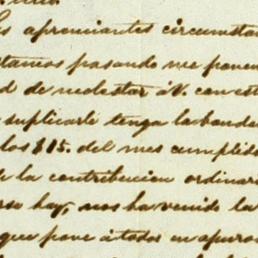 as apremiantes circunstan
stamos pasando me ponen
d de molestar á V. con est
suplicarle tenga la bonda
los $15. del mes cumplido
e la contribucion ordinar
rso hay, nos ha venido la
que pone á todos en apuro